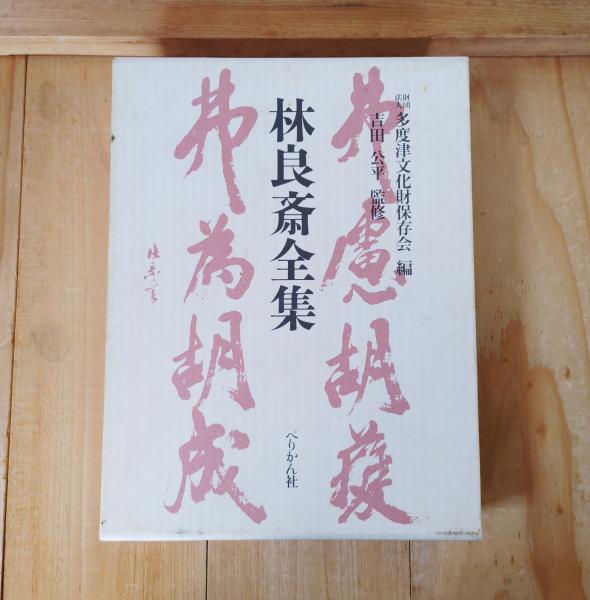 財団法人 多度津文化財保存会 編
吉田 公平 監修
林良斎全集
ぺりかん社
弗慮胡獲
弗為胡成